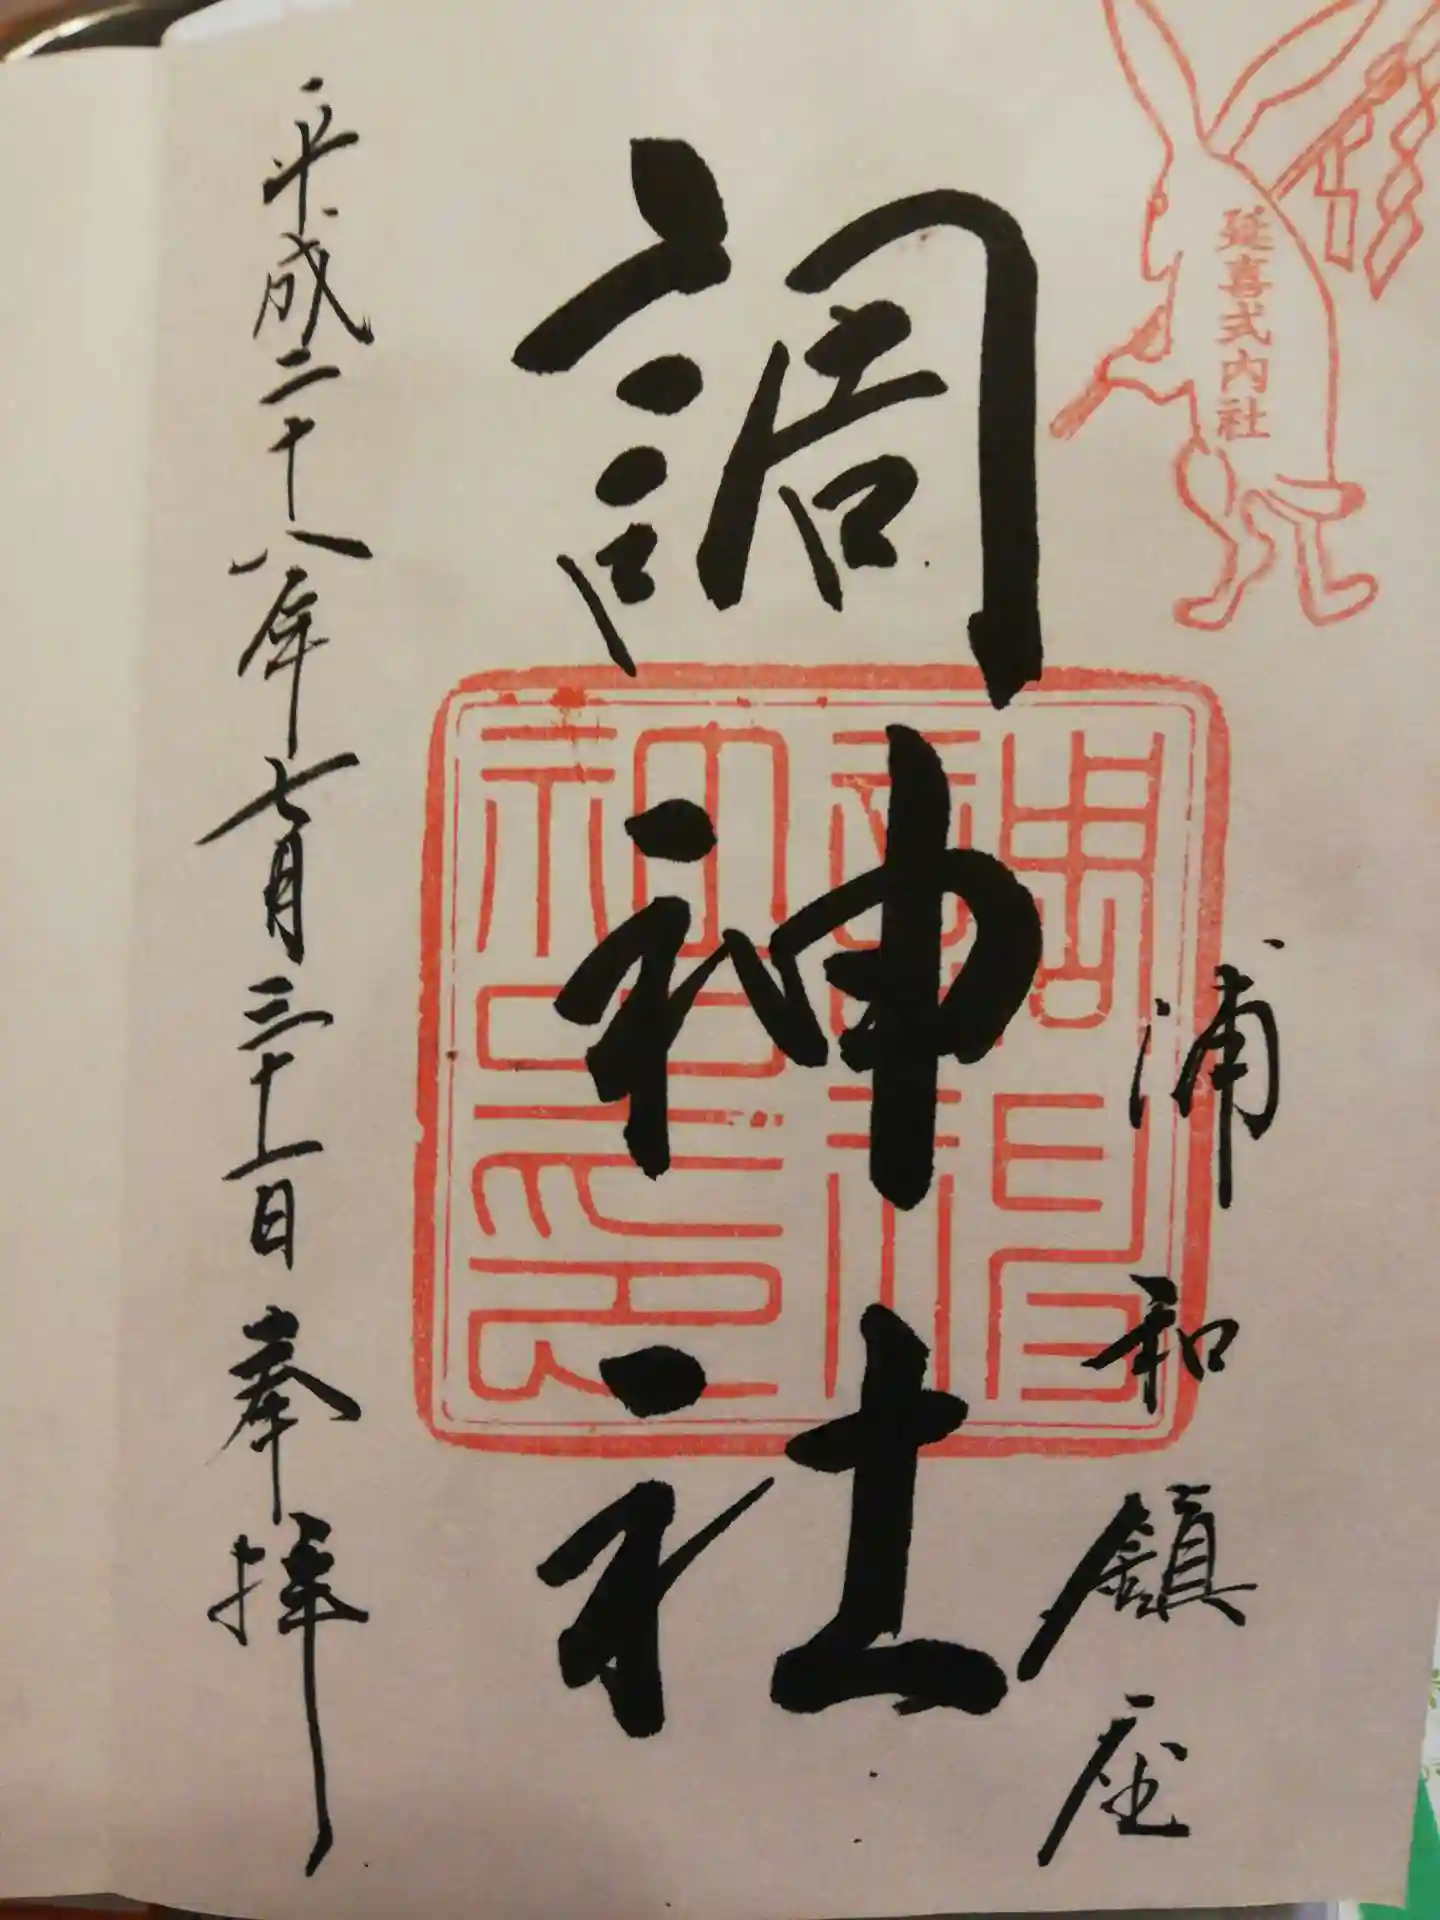 延喜式内社
浦和鎮座
調神社
平成二十八年七月三十一日 奉拝